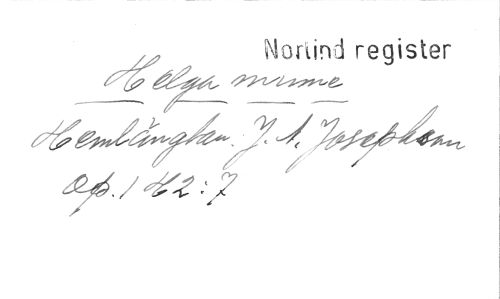 Norlind register
Helga minne
Hemlängtan. J. A. Josephson
Op. 1 H2:7